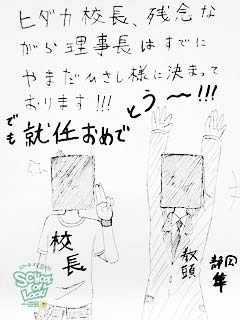 ヒダカ校長、残念な
がら理事長はすでに
やまだひさし様に決まって
おります!!!
でも就任おめでとう〜!!!
校長
教頭
静岡
隼
SCHOOL OF LOCK!